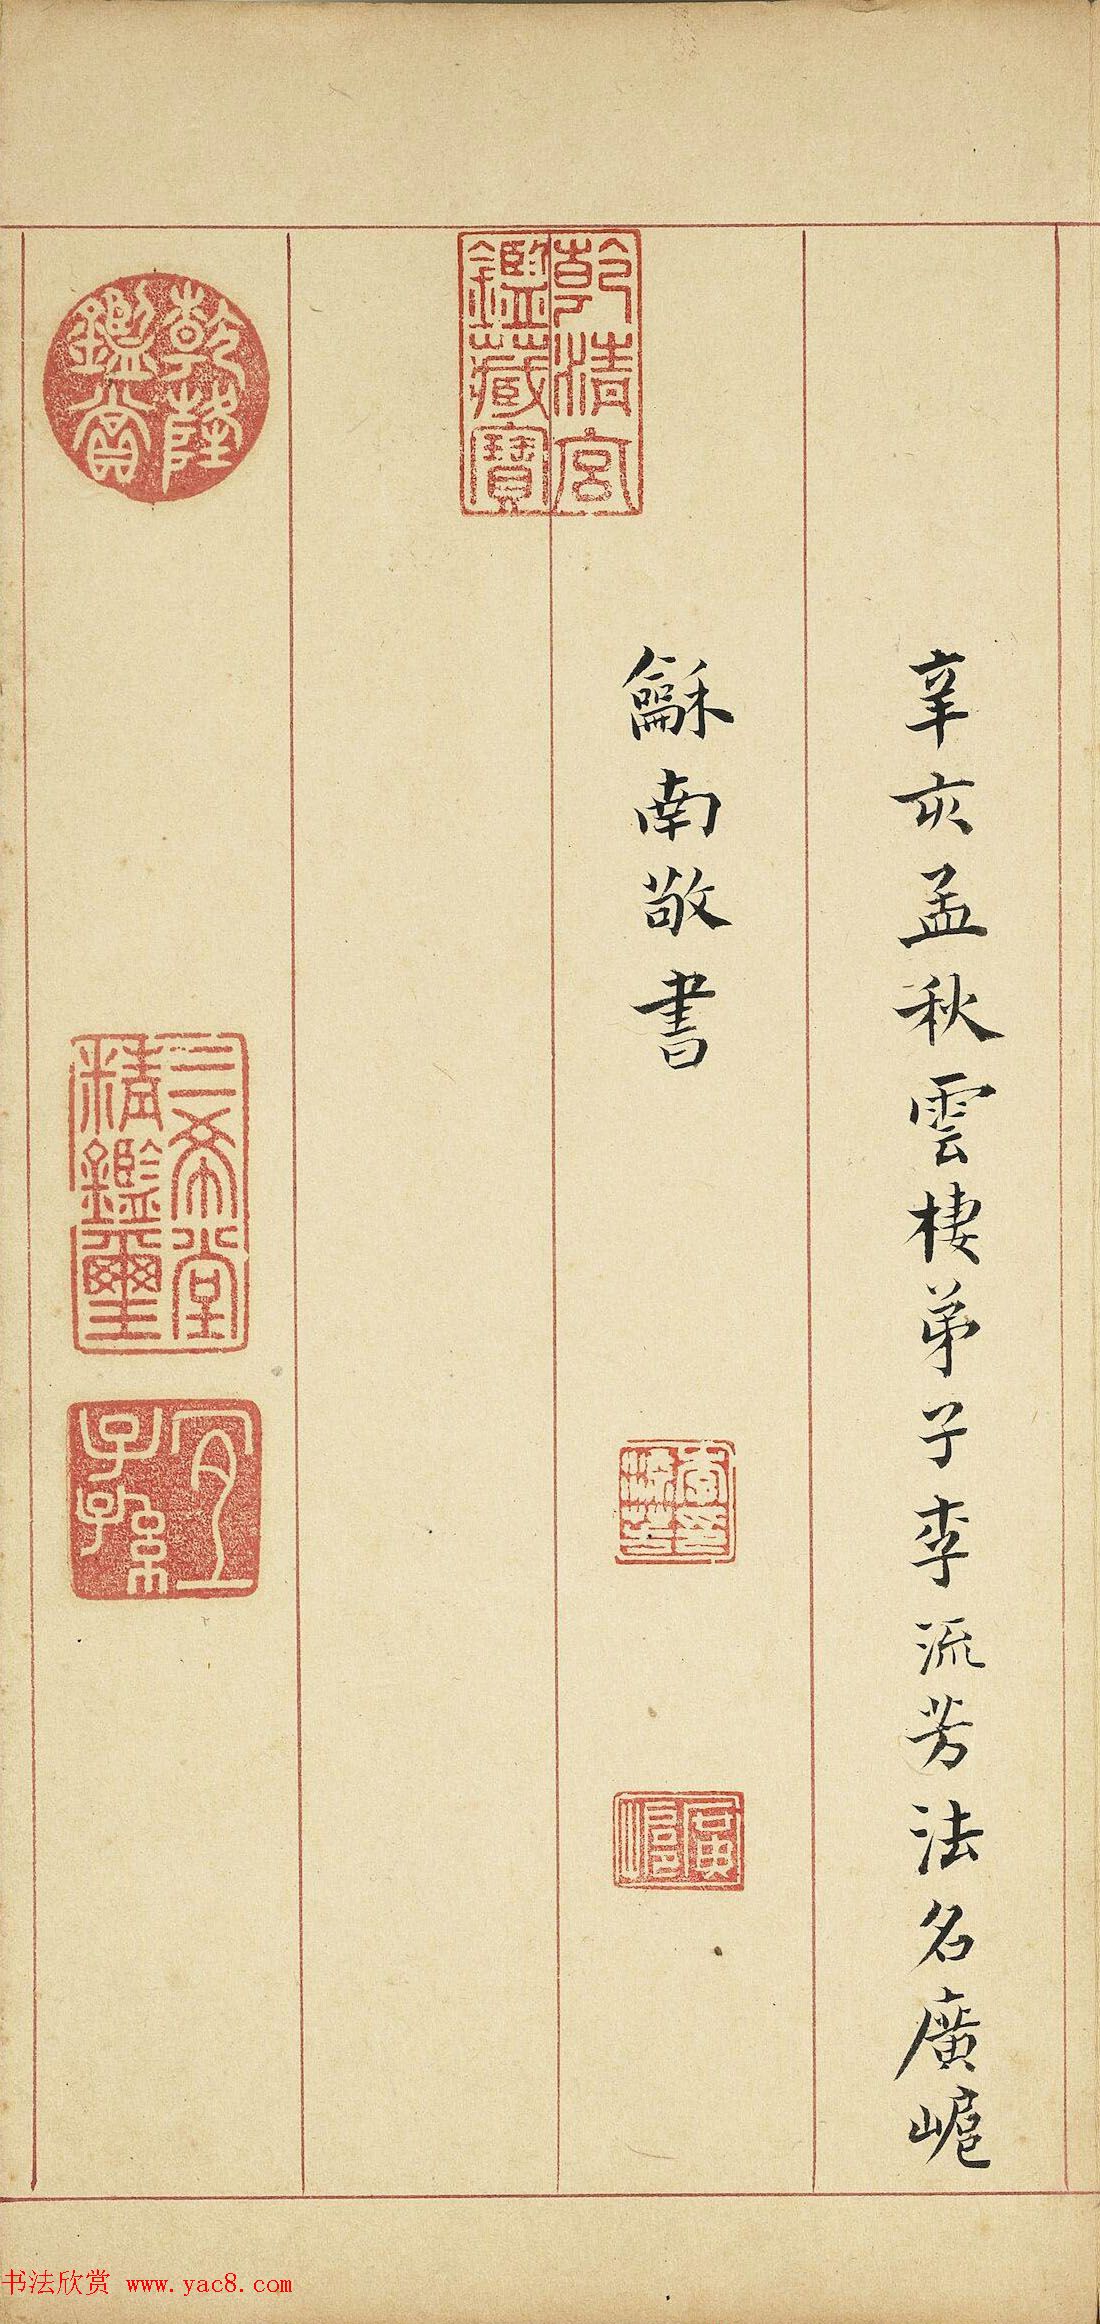 辛亥孟秋雲棲弟子李流芳法名廣㟴
龢南敬書
乾清宮
鑑藏寶
李流芳印
乾隆
鑑賞
三希堂
精鑑璽
宜
子孫
书法欣赏 www.yac8.com